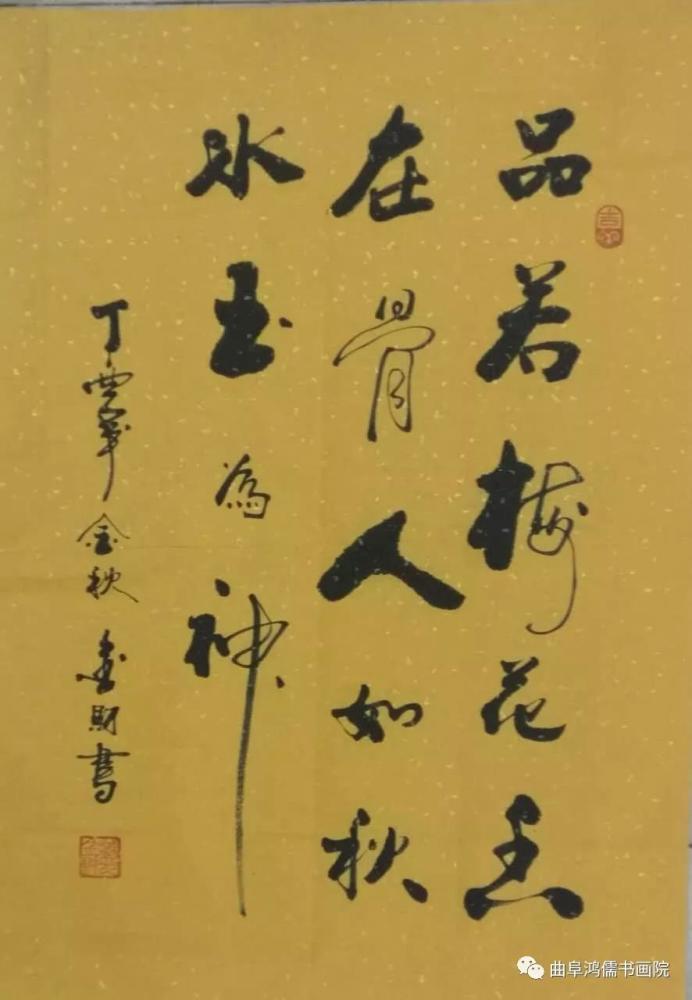 品若梅花香
在骨人如秋
水玉为神
丁酉年金秋 財書
曲阜鸿儒书画院